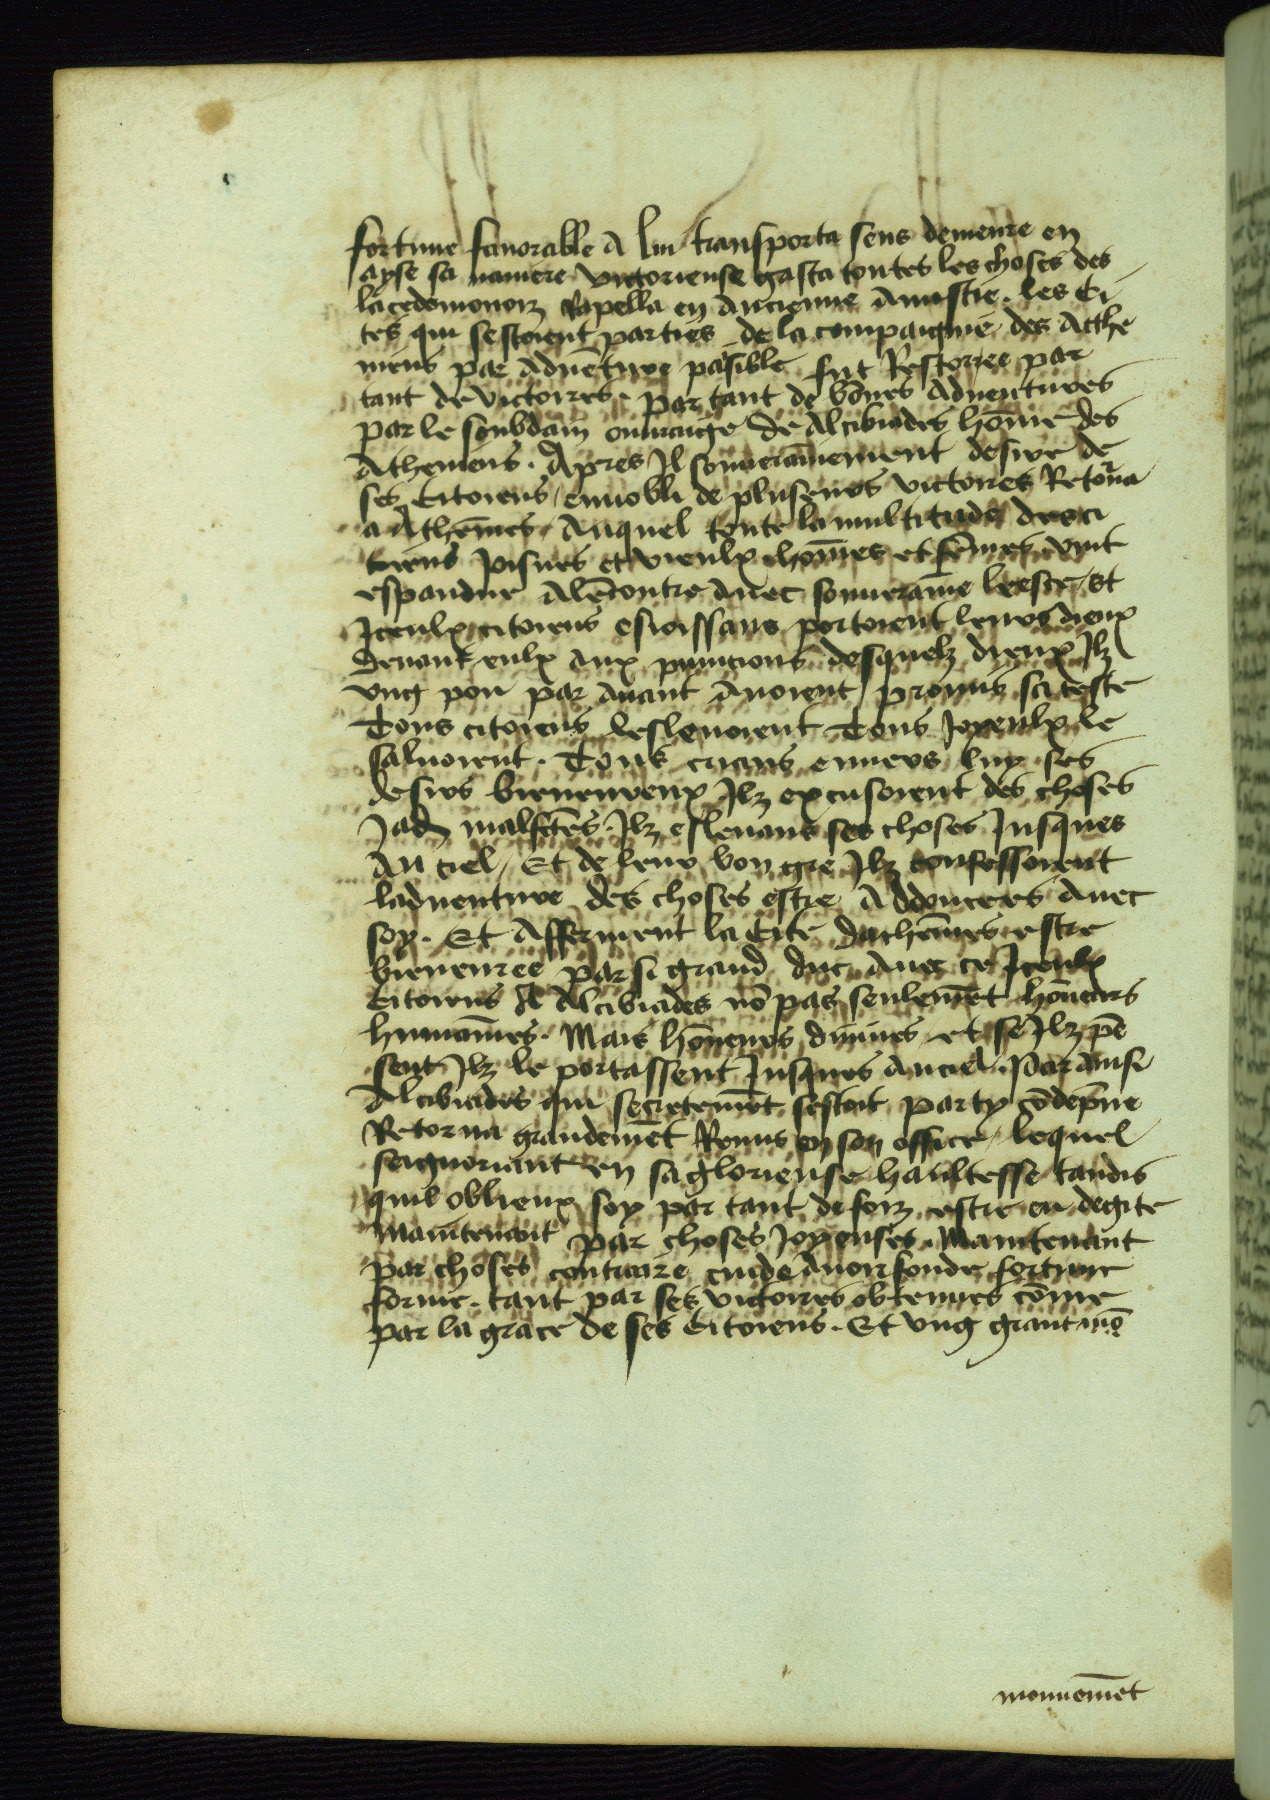 fortune fauorable A lui transporta sens demeure en
ayse sa nauiere victorieuse gasta toutes les choses des
lacedemonoiz Rapella en Ancienne Amistie. les Ci-
tes qui sestoient parties de la compaignie des Athe
niens par Aduēture paisible fut Restoree par
tant de victoires. par tant de bōnes Aduentures
par le soubdain ouuraige de Alcibiades hōme des
Atheniens. Apres Il souuerainement desire de
ses Citoiens ennobli de pluseurs victoires Retōrna
a Athēnes. Auquel toute la multitude des ci
toiens Ieunes et vieulx hōmes et fēmes vint
espandue Alēcontre Auec souueraine leesce. et
Iceulx citoiens esioissans portoient leurs dieux
Deuant eulx Aux punicions desquelz dieux Ilz
vng pou par Auant Auoient promis sa teste
Tous citoiens leslenoient Tous Ioyeulx le
saluoient. Tous crians enuers luy ses
desirs bieneureux Ilz excusoient des choses
Jadis malfctēs. Ilz esleuans ses choses Iusques
Au ciel. Et de leur bon gre Ilz confessoient
laduenture des choses estre Addoucees Auec
soy. Et Afferment la Cite dathēnes estre
bieneuree par si grand duc Auec ce Iceulx
Citoiens A Alcibiades nō pas seulemēt hōneurs
humaines. Mais hōneurs diuines et se Ilz peu
sent Ilz le portassent Iusques Au ciel. Par Ainsi
Alcibiades qui secretemēt sestoit party cōdepne
Retorna grandemēt Remis en son office. lequel
seignoriant en sa glorieuse haultesse tandis
quil oblieux soy par tant de foiz estre en degite
Maintenant par choses Ioyeuses. Maintenant
par choses contraire cuide Auoir fonde fortune
ferme. tant par ses victoires obtenues cōme
par la grace de ses Citoiens. Et vng grant mō
mouuemēt